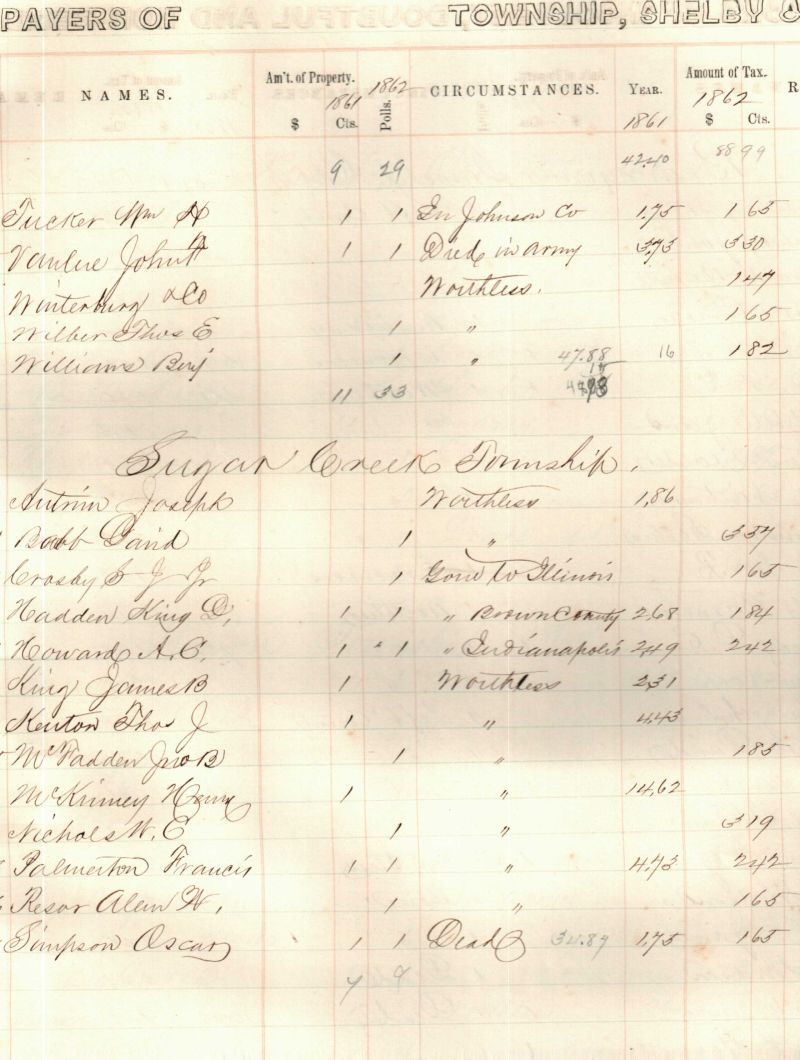 PAYERS OF TOWNSHIP, SHELBY
NAMES. Am't. of Property. 1861 $ Cts. 1862 Polls. CIRCUMSTANCES. YEAR. 1861 Amount of Tax. 1862 $ Cts. R
9 29 42.40 88 99
Tucker Wm H 1 1 In Johnson Co 1.75 1 65
Vanlue John H 1 1 Died in army 3.73 3 30
Winterburg & Co Worthless. 1 47
Wilber Thos E 1 " 1 65
Williams Benj 1 " 47.88 16 1 82
11 33
Sugar Creek Township.
Antrim Joseph Worthless 1.86
Babb David 1 " 3 37
Crosby S J Jr 1 Gone to Illinois 1 65
Hadden King D. 1 1 " Brown County 2.68 1 84
Howard A. C. 1 " 1 " Indianapolis 2.49 2 42
King James B 1 Worthless 2.31
Kenton Thos J 1 " 4.43
McFadden Jno B 1 " 1 85
McKinney Henry 1 " 14.62
Nichols W. E 1 " 3 19
Palmerton Francis 1 1 " 4.73 2 42
Resor Alem W, 1 " 1 65
Simpson Oscar 1 1 Dead 34.87 1.75 1 65
7 9